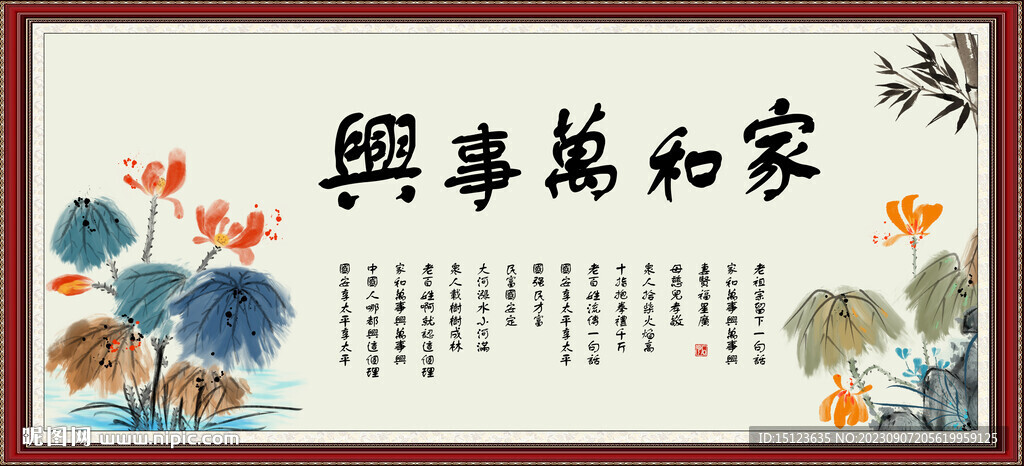 家和萬事興
老祖宗留下一句話
家和萬事興萬事興
妻賢福星廣
母慈兒孝敬
衆人拾柴火焰高
十指抱拳禮千斤
老百姓流傳一句話
國安享太平享太平
國強民才富
民富國安定
大河漲水小河滿
衆人栽樹樹成林
老百姓啊就認這個理
家和萬事興萬事興
中國人哪都興這個理
國安享太平享太平
昵图网 www.nipic.com
ID:15123635 NO:20230907205619959125